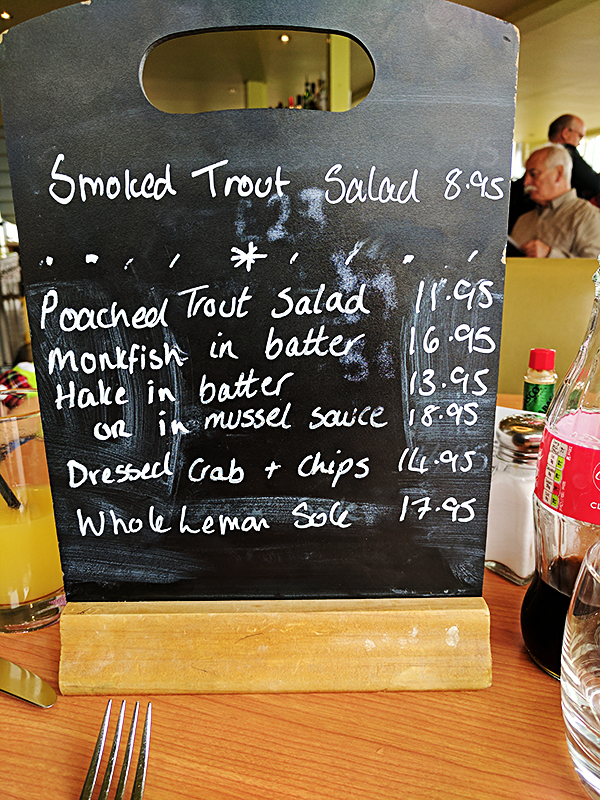 Smoked Trout Salad 8.95
Poached Trout Salad 11.95
Monkfish in batter 16.95
Hake in batter 13.95
or in mussel sauce 18.95
Dressed Crab + Chips 14.95
Whole Lemon Sole 17.95